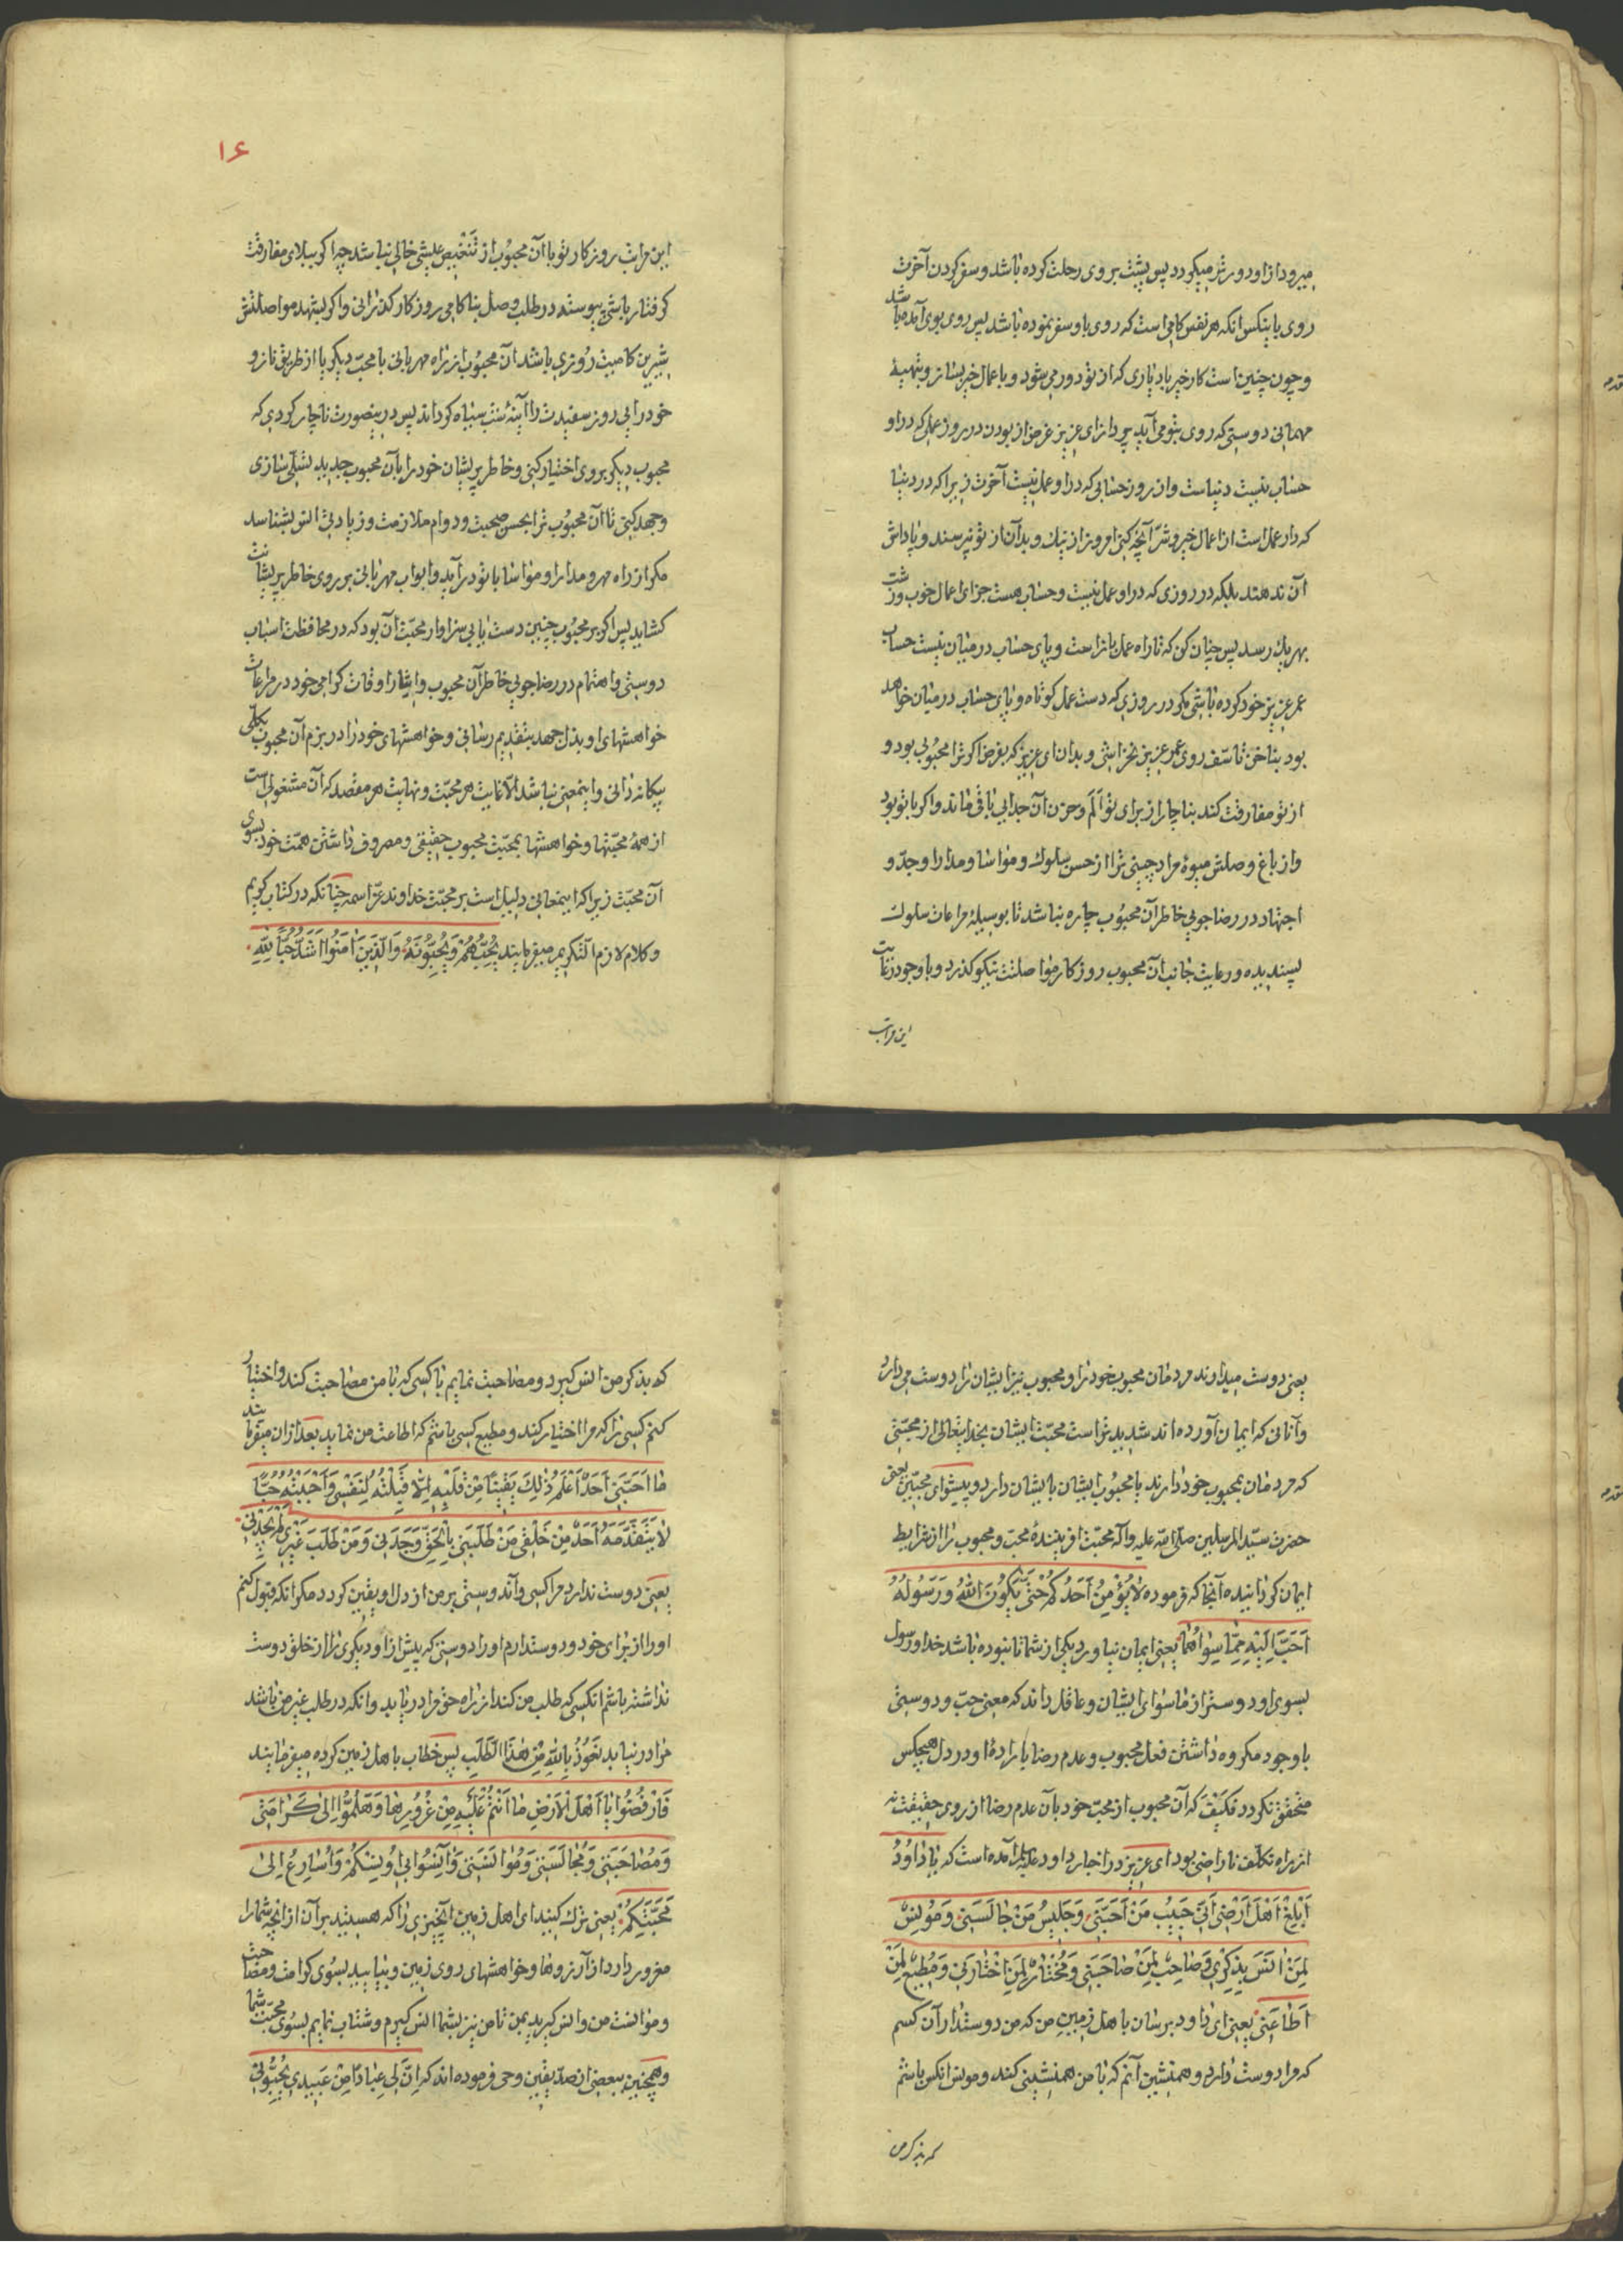 میرود از او دورتر میگردد پس پشت بروی رحلت کرده باشد و سفر کردن آخرت
روی با ینکس انکه هر نفس کامی است که روی باو سفر نموده باشد پس روی بوی آمده باشد
و چون چنین است کار خیر باد یاری که از تو دور می شود و با عمال خیر بساز و تهیهٔ
مهمانی دوستی که روی بتو می آید پرداز ای عزیز غرض از بودن در روز عملی که در او
حساب نیست دنیاست و از روز حسابی که در او عمل نیست آخرت زیرا که در دنیا
که دار عمل است از اعمال خیر و شر آنچه کنی امروز از نیك و بد آن از تو نپرسند و پاداش
آن ندهند بلکه در روزی که در او عمل نیست و حساب هست جزای اعمال خوب و زشت
بهر یك رسد پس چنان کن که تا راه عمل باز است و پای حساب در میان نیست حساب
عمر عزیز خود کرده باشی مگو در روزی که دست عمل کوتاه و پای حساب در میان خواهد
بود بناخن تأسف روی عمر عزیز نخراشی و بدان ای عزیز که بفرض اکر ترا محبوبی بود و
از تو مفارقت کند بناچار از برای تو اَلَم و حزن آن جدایی باقی ماند و اکر با تو بود
و از باغ وصلش میوهٔ مراد چینی ترا از حسن سلوك و مواسا و مدارا و جدّ و
اجتهاد در رضاجویی خاطر آن محبوب چاره نباشد تا بوسیلهٔ مراعات سلوك
پسندیده و رعایت جانب آن محبوب روزکار مواصلتت نیکو کذرد و با وجود رعایت
این مراتب
۱۶
این مراتب روزکار تو با آن محبوب از تَنْغیص عیشی خالی نباشد چرا کو ببلای مفارقت
کرفتار باشی پیوسته در طلب وصل بناکامی روزکار کذرانی و اکر بشهد مواصلتش
شیرین کامیت روزی باشد آن محبوب از راه مهربانی با محبّ دیکر یا از طریق ناز و
خودرایی روز سفیدت را آینهٔ شب سیاه کرداند پس در ینصورت ناچار کردی که
محبوب دیکر بروی اختیار کنی و خاطر پریشان خود را بآن محبوب جدید تسلّی سازی
و جهد کنی تا آن محبوب ترا بحسن صحبت و دوام ملازمت و زیادتی انس بشناسد
مکر از راه مهر و مدارا و مواسا با تو درآید و ابواب مهربانی بر روی خاطر پریشانت
کشاید پس اکر بر محبوب چنین دست یابی سزاوار محبّت آن بود که در محافظت اسباب
دوستی و اهتمام در رضاجویی خاطر آن محبوب و ایثار اوقات کرامی خود در مراعات
خواهشهای او بذل جهد بتقدیم رسانی و خواهشهای خود را در بزم آن محبوب بکلّی
بیکانه دانی و اینمعنی نباشد الّا غایت هر محبّت و نهایت هر مقصد که آن مشغولی است
از همهٔ محبّتها و خواهشها بمحبّت محبوب حقیقی و مصروف داشتن همّت خود بسوی
آن محبّت زیرا که اینمعانی دلیل است بر محبّت خداوند عزّ اسمه چنانکه در کتاب کریم
و کلام لازم التکریم میفرمایند یُحِبُّهُمْ وَیُحِبُّونَهُ وَالَّذینَ اٰمَنُوا اَشَدُّ حُبًّا لِلّٰهِ
یعنی دوست میدارند مردمان محبوب خود را و محبوب نیز ایشان را دوست می دارد
و آنانی که ایمان آورده اند شدیدتر است محبّت ایشان بخدایتعالی از محبّتی
که مردمان بمحبوب خود دارند یا محبوب ایشان با یشان دارد و پیشوای محبّین یعنی
حضرت سیّد المرسلین صلّی الله علیه و آله محبّت افرینندهٔ محبّ و محبوب را از شرایط
ایمان کردانیده آنجا که فرموده لٰا یُؤْمِنُ اَحَدُکُمْ حَتّٰی یَکُونَ اللّٰهُ وَرَسُولُهُ
اَحَبَّ اِلَیْهِ مِمّٰا سِوٰاهُمٰا یعنی ایمان نیاورد یکی از شما تا نبوده باشد خدا و رسول
بسوی او دوستر از ماسوای ایشان و عاقل داند که معنی حبّ و دوستی
با وجود مکروه داشتن فعل محبوب و عدم رضا بارادهٔ او در دل هیچکس
متحقق نکردد فَکَیْفَ که آن محبوب از محبّ خود بآن عدم رضا از روی حقیقت نه
از راه تکلّف ناراضی بود ای عزیز در اخبار داود علیه السلام آمده است که یٰا دٰاوُدُ
اَبْلِغْ اَهْلَ اَرْضی اَنّی حَبیبُ مَنْ اَحَبَّنی وَجَلیسُ مَنْ جٰالَسَنی وَمُونِسٌ
لِمَنْ اَنَسَ بِذِکْری وَصٰاحِبٌ لِمَنْ صٰاحَبَنی وَمُخْتٰارٌ لِمَنِ اخْتٰارَنی وَمُطیعٌ لِمَنْ
اَطٰاعَنی یعنی ای داود برسان باهل زمین من که من دوستدار آن کسم
که مرا دوست دارد و همنشین آنم که با من همنشینی کند و مونس انکس باشم
که بذکر من
که بذکر من انس کیرد و مصاحبت نمایم با کسی که با من مصاحبت کند و اختیار
کنم کسی را که مرا اختیار کند و مطیع کسی باشم که اطاعت من نماید بعد از ان میفرمایند
مٰا اَحَبَّنی اَحَدٌ اَعْلَمُ ذٰلِكَ یَقینًا مِنْ قَلْبِهِ اِلّٰا قَبِلْتُهُ لِنَفْسی وَاَحْبَبْتُهُ حُبًّا
لٰا یَتَقَدَّمَهُ اَحَدٌ مِنْ خَلْقی مَنْ طَلَبَنی بِالْحَقِّ وَجَدَنی وَمَنْ طَلَبَ غَیْری لَمْ یَجِدْنی
یعنی دوست ندارد مرا کسی و آندوستی بر من از دل او یقین کردد مکر انکه قبول کنم
او را از برای خود و دوستدارم او را دوستی که پیش از او دیکری را از خلق دوست
نداشته باشم انکسی که طلب من کند از راه حق مرا دریابد و انکه در طلب غیر من باشد
مرا درنیابد نَعُوذُ بِاللّٰهِ مِنْ هٰذَا الطَّلَبِ پس خطاب باهل زمین کرده میفرمایند
فَارْفُضُوا یٰا اَهْلَ الْاَرْضِ مٰا اَنْتُمْ عَلَیْهِ مِنْ غُرُورِهٰا وَهَلُمُّوا اِلیٰ کَرٰامَتی
وَمُصٰاحَبَتی وَمُجٰالَسَتی وَمُوٰانَسَتی وَآنِسُوا بی اُونِسْکُمْ وَاُسٰارِعُ اِلیٰ
مَحَبَّتِکُمْ یعنی ترك کنید ای اهل زمین انچیزی را که هستید بر آن از انچه شمارا
مغرور دارد از آرزوها و خواهشهای روی زمین و بیایید بسوی کرامت و مصاحبت
و موانست من و انس کیرید بمن تا من نیز بشما انس کیرم و شتاب نمایم بسوی محبّت شما
و همچنین ببعضی از صدّیقین وحی فرموده اند که اِنَّ لی عِبٰادًا مِنْ عَبیدی یُحِبُّونی